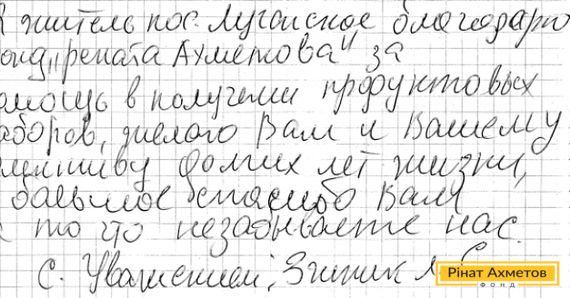 житель пос. Луганское благодарю
онд „Рената Ахметова" за
омощь в получении продуктовых
аборов, желаю Вам и Вашему
лективу долгих лет жизни,
большое спасибо Вам
то что незабываете нас.
С. Уважением, Зинник
Рінат Ахметов
ФОНД